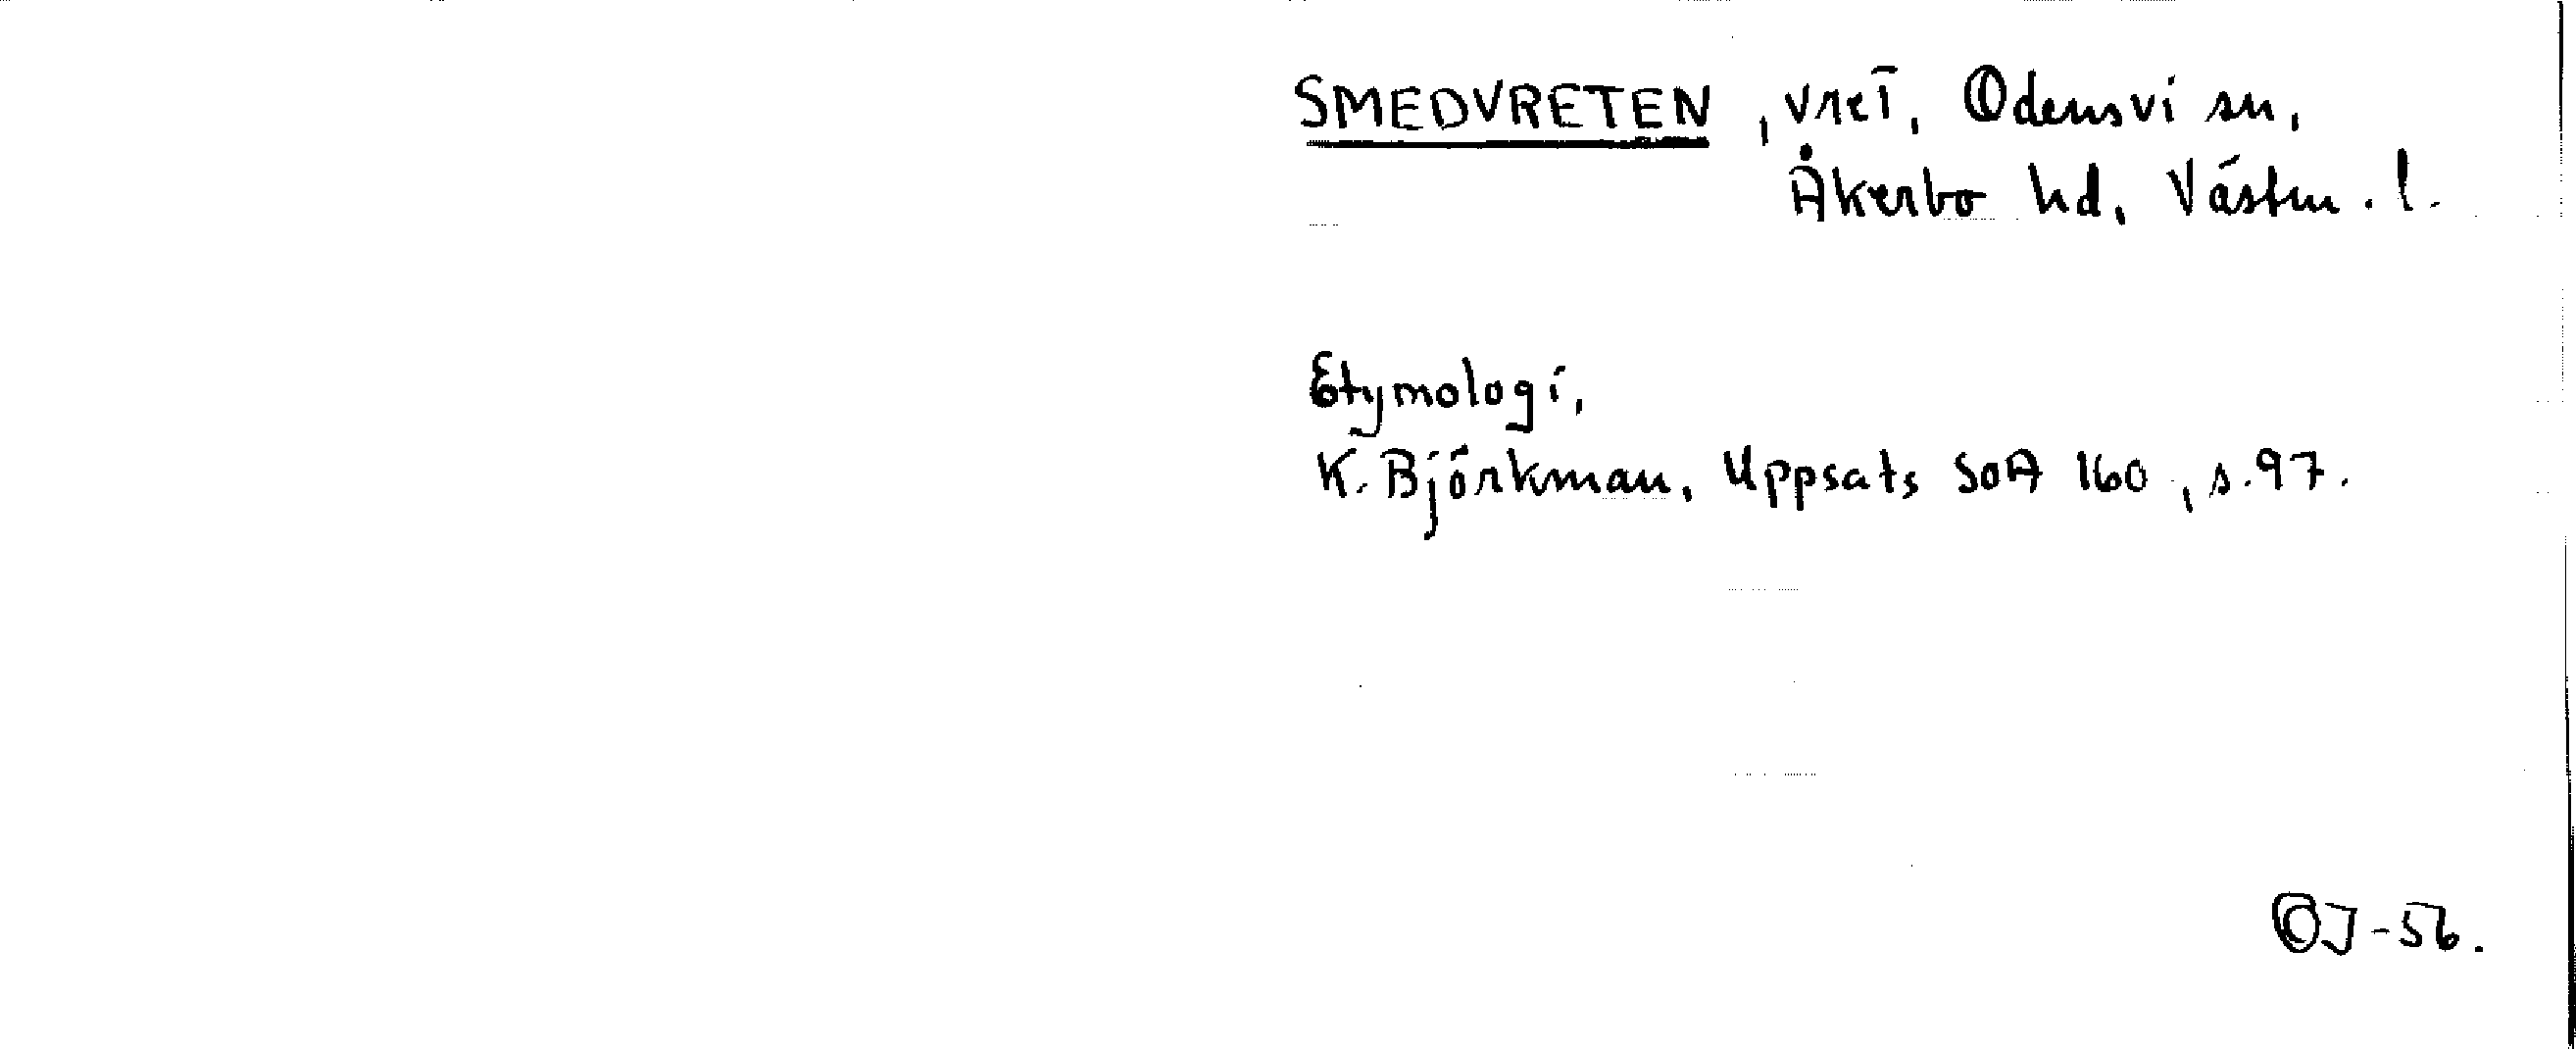 SMEDVRETEN, vret, Odensvi sn,
Åkerbo hd, Västm.l.
Etymologi,
K. Björkman, Uppsats SOA 160, s.97.
OJ-56.